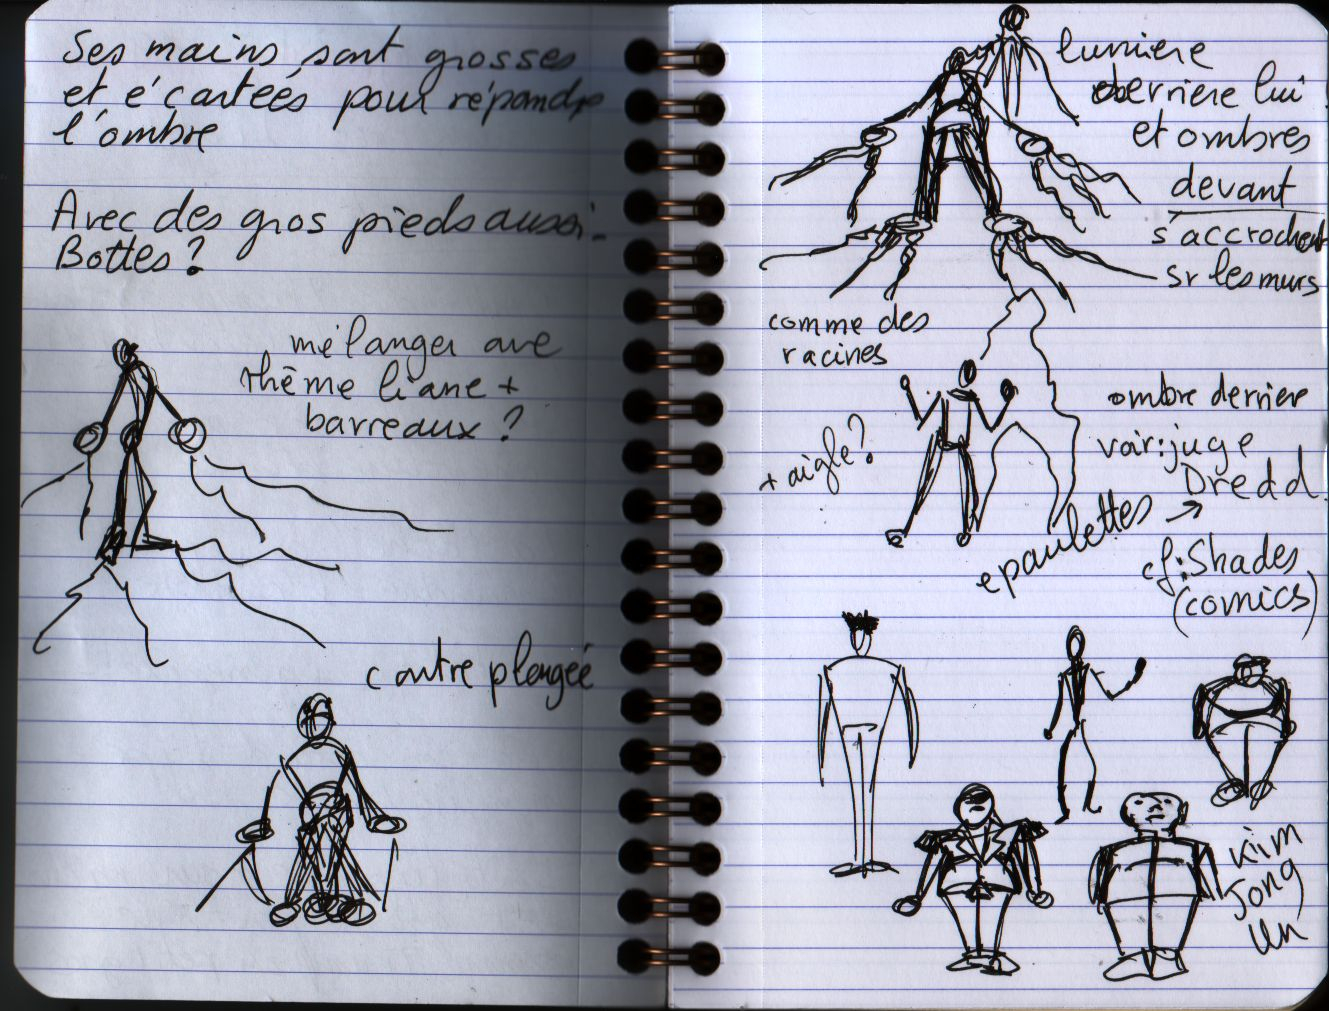 Ses mains sont grosses
et écartées pour répandre
l'ombre
Avec des gros pieds aussi.
Bottes ?
mélanger ave
thème liane +
barreaux ?
contre plongée
lumière
derriere lui
et ombres
devant
s'accrochent
sr les murs
comme des
racines
+ aigle ?
ombre derriere
voir : juge
Dredd
epaulettes →
cf : Shades
(comics)
Kim
Jong
Un